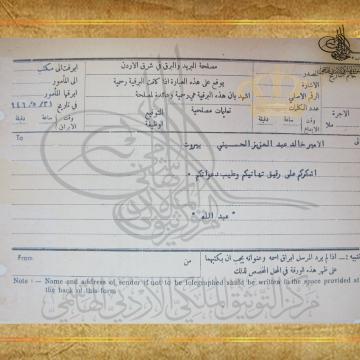 مصلحة البريد والبرق في شرق الأردن
ابرقت الى مكتب
يوقع على هذه العبارة اذا كانت البرقية رسمية
المصدر
الى المأمور
اشهد بان هذه البرقية هي رسمية وعائدة لمصلحة
الاشارة
ابرقها المأمور
التوقيع
تعليمات مصلحية
الرقم الاصلي
في تاريخ
الوظيفة
عدد الكلمات
الاجرة
وقت الابراق
ساعة دقيقة
وقت
ساعة دقيقة
ملا
To
الامير خالد عبد العزيز الحسيني بيروت
اشكركم على رقيق تهانيكم وطيب دعواتكم
عبد الله
From
من
تنبيه : — اذا لم يرد المرسل ابراق اسمه وعنوانه يجب ان يكتبهما
على ظهر هذه الورقة في المحل المخصص لذلك
Note : — Name and address of sender if not to be telegraphed should be written in the space provided at
the back of this form
مركز التوثيق الملكي الأردني الهاشمي